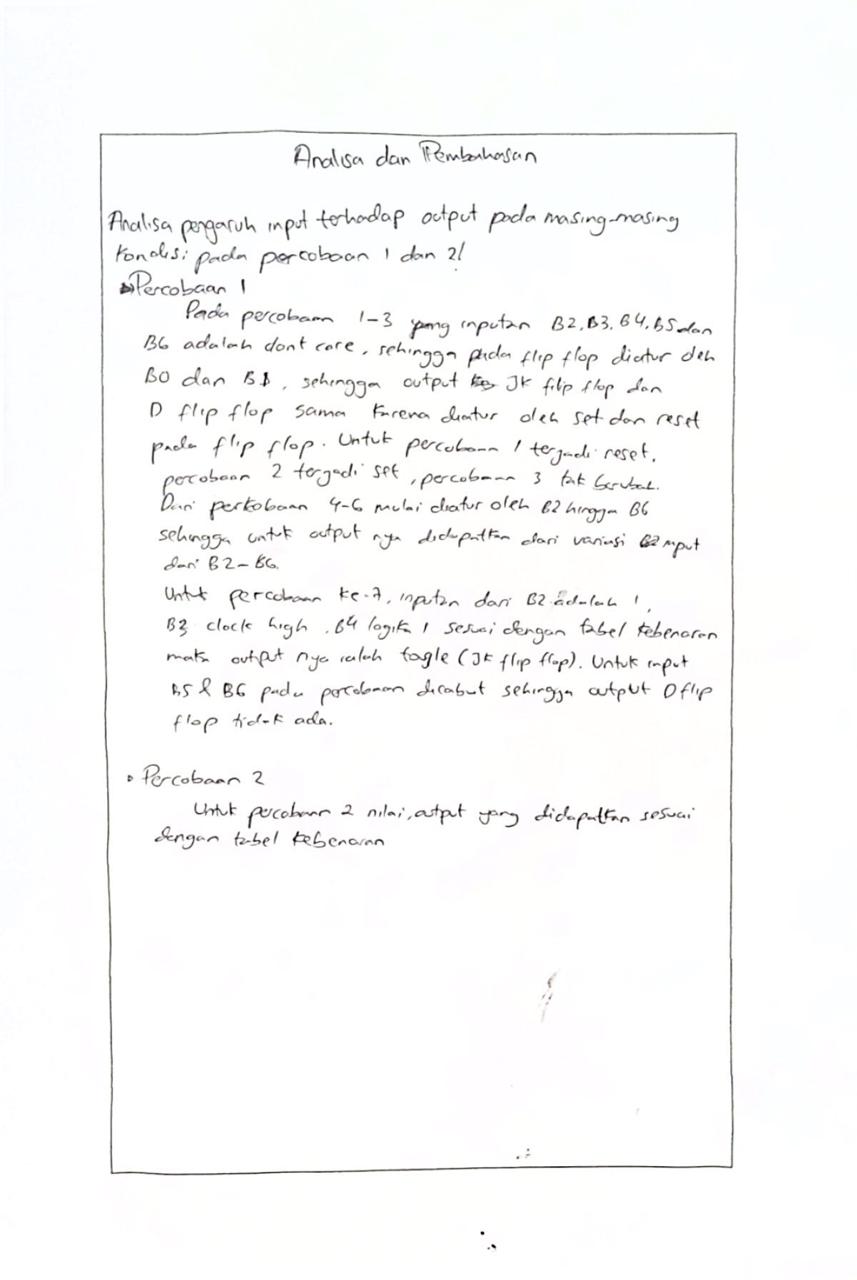 Analisa dan Pembahasan
Analisa pengaruh input terhadap output pada masing-masing
kondisi pada percobaan 1 dan 2!
Percobaan 1
Pada percobaan 1-3 yang inputan B2, B3, B4, B5 dan
B6 adalah dont care, sehingga pada flip flop diatur oleh
B0 dan B1, sehingga output JK flip flop dan
D flip flop sama karena diatur oleh set dan reset
pada flip flop. Untuk percobaan 1 terjadi reset,
percobaan 2 terjadi set, percobaan 3 tak berubah.
Dari perkobaan 4-6 mulai diatur oleh B2 hingga B6
sehingga untuk output nya didapatkan dari variasi input
dari B2-B6.
Untuk percobaan ke-7, inputan dari B2 adalah 1,
B3 clock high, B4 logika 1 sesuai dengan tabel kebenaran
maka output nya ialah togle (JK flip flop). Untuk input
B5 & B6 pada percobaan dicabut sehingga output D flip
flop tidak ada.
• Percobaan 2
Untuk percobaan 2 nilai, output yang didapatkan sesuai
dengan tabel kebenaran